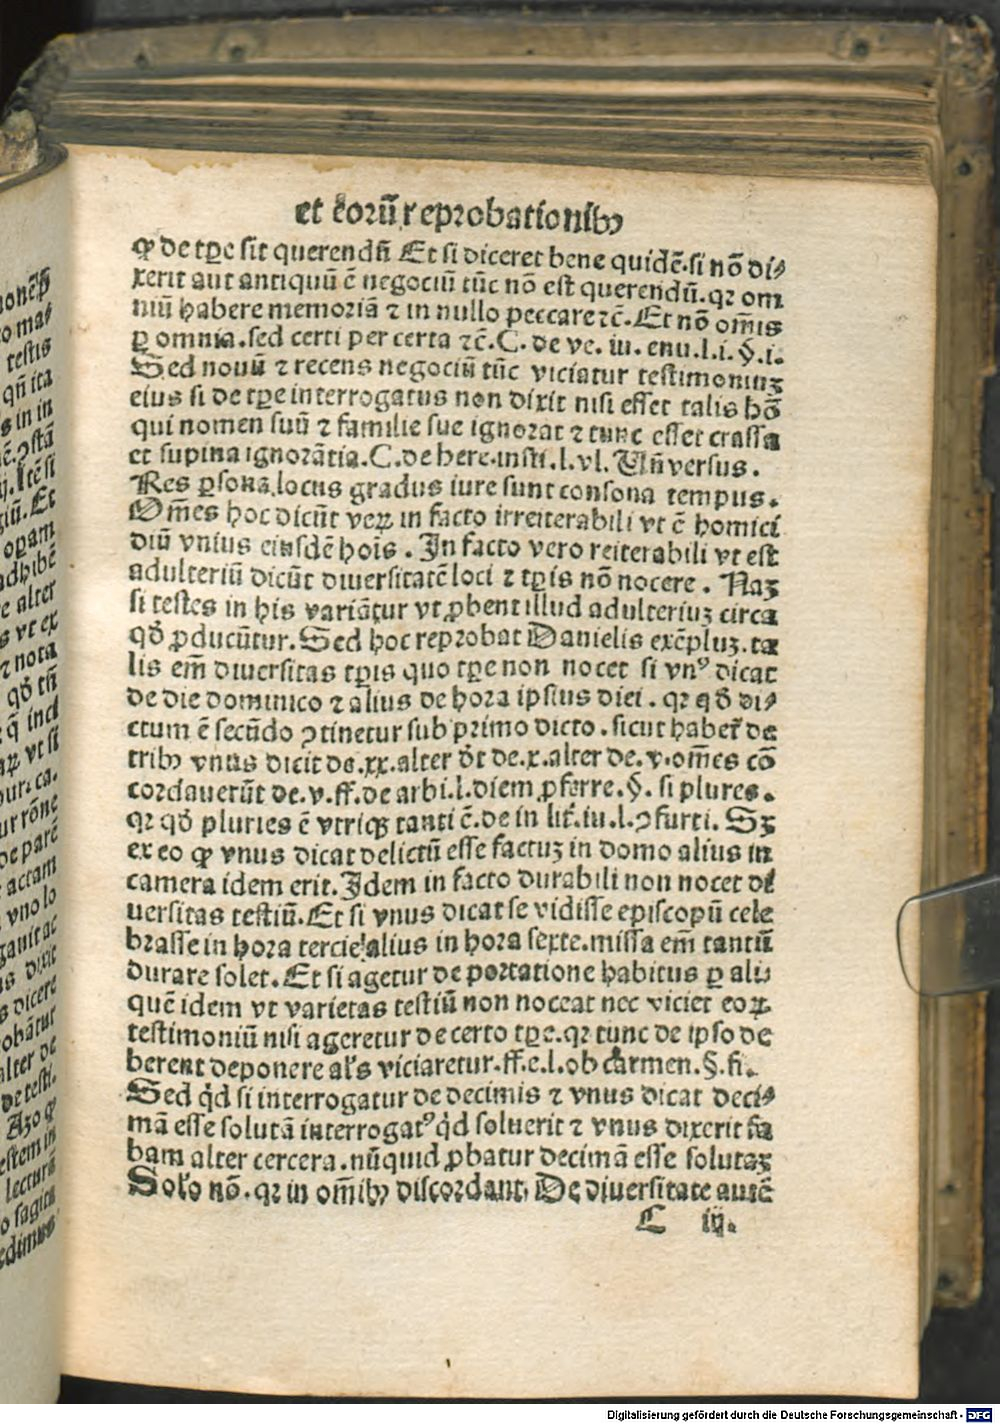 et eorū reprobationibꝰ
ꝙ de tꝑe sit querendū. Et si diceret bene quidē. si nō di⸗
xerit aut antiquū ē negociū tūc nō est querendū. qꝛ om
niū habere memoriā ⁊ in nullo peccare ⁊c̄. Et nō om̄is
ꝑ omnia. sed certi per certa ⁊c̄. C. de ve. iu. enu. l. i. §. i.
Sed nouū ⁊ recens negociū tūc viciatur testimoniuꝫ
eius si de tꝑe interrogatus non dixit nisi esset talis hō
qui nomen suū ⁊ familie sue ignorat ⁊ tunc esset crassa
et supina ignorātia. C. de here. insti. l. vl. Un̄ versus.
Res ꝑsona locus gradus iure sunt consona tempus.
Om̄es hoc dicūt veꝝ in facto irreiterabili vt ē homici
diū vnius eiusdē hoīs. In facto vero reiterabili vt est
adulteriū dicūt diuersitatē loci ⁊ tꝑis nō nocere. Naꝫ
si testes in his variātur vt ꝓbent illud adulteriuꝫ circa
qd̄ ꝓducūtur. Sed hoc reprobat Danielis exēpluꝫ. ta
lis em̄ diuersitas tꝑis quo tꝑe non nocet si vnꝰ dicat
de die dominico ⁊ alius de hora ipsius diei. qꝛ qd̄ di⸗
ctum ē secūdo ꝯtinetur sub primo dicto. sicut habet̄ de
tribꝰ vnus dicit de. xx. alter dt̄ de. x. alter de. v. om̄es cō
cordauerūt de. v. ff. de arbi. l. diem ꝓferre. §. si plures.
qꝛ qd̄ pluries ē vtriqꝫ tanti ē. de in lit̄. iu. l. ꝯ furti. Sꝫ
ex eo ꝙ vnus dicat delictū esse factuꝫ in domo alius in
camera idem erit. Idem in facto durabili non nocet di
uersitas testiū. Et si vnus dicat se vidisse episcopū cele
brasse in hora tercie alius in hora sexte. missa em̄ tantū
durare solet. Et si agetur de portatione habitus ꝑ ali⸗
quē idem vt varietas testiū non noceat nec viciet eoꝝ
testimoniū nisi ageretur de certo tꝑe. qꝛ tunc de ipso de
berent deponere al's viciaretur. ff. e. l. ob carmen. §. fi.
Sed qd̓ si interrogatur de decimis ⁊ vnus dicat deci⸗
mā esse solutā interrogatꝰ qd̓ soluerit ⁊ vnus dixerit fa
bam alter cercera. nūquid ꝓbatur decimā esse solutaꝫ
Sol'o nō. qꝛ in om̄ibꝰ discordant. De diuersitate autē
C iij.
Digitalisierung gefördert durch die Deutsche Forschungsgemeinschaft - DFG